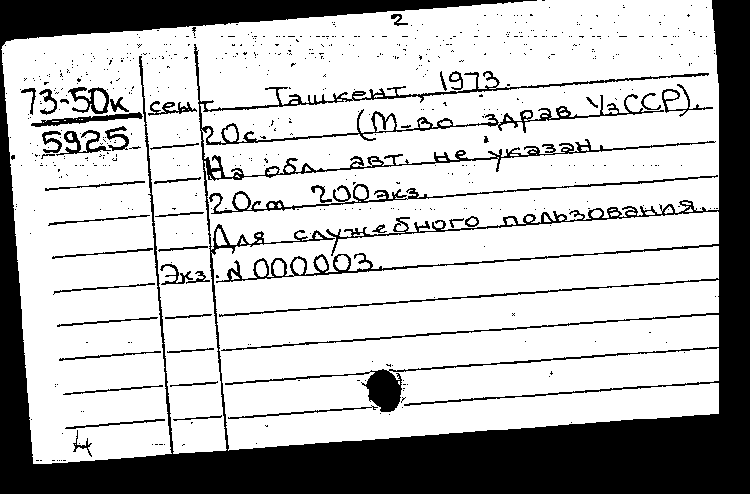 2
73-50к сент. Ташкент, 1973.
5925 20с. (М-во здрав. УзССР).
На обл. авт. не указан.
20см. 200экз.
Для служебного пользования.
Экз. N 000003.